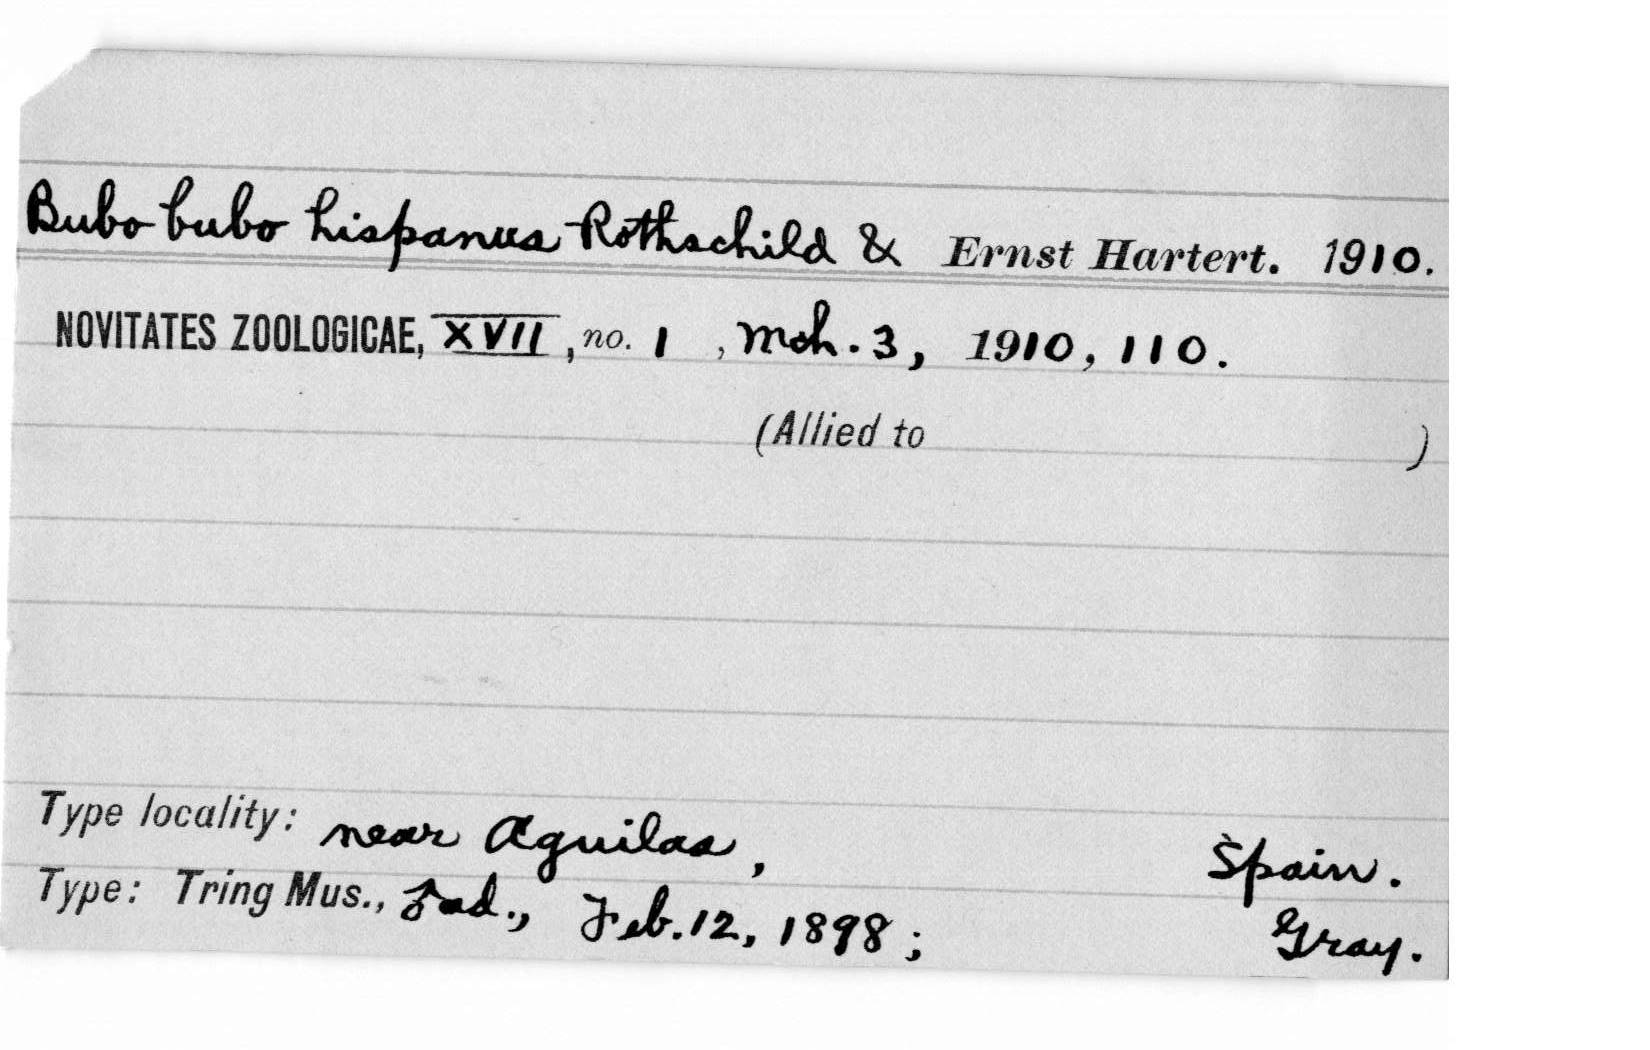 Bubo bubo hispanus Rothschild & Ernst Hartert. 1910.
NOVITATES ZOOLOGICAE, XVII, no. 1, Mch. 3, 1910, 110.
(Allied to )
Type locality: near Aguilas, Spain.
Type: Tring Mus., ad., Feb. 12, 1898; Gray.